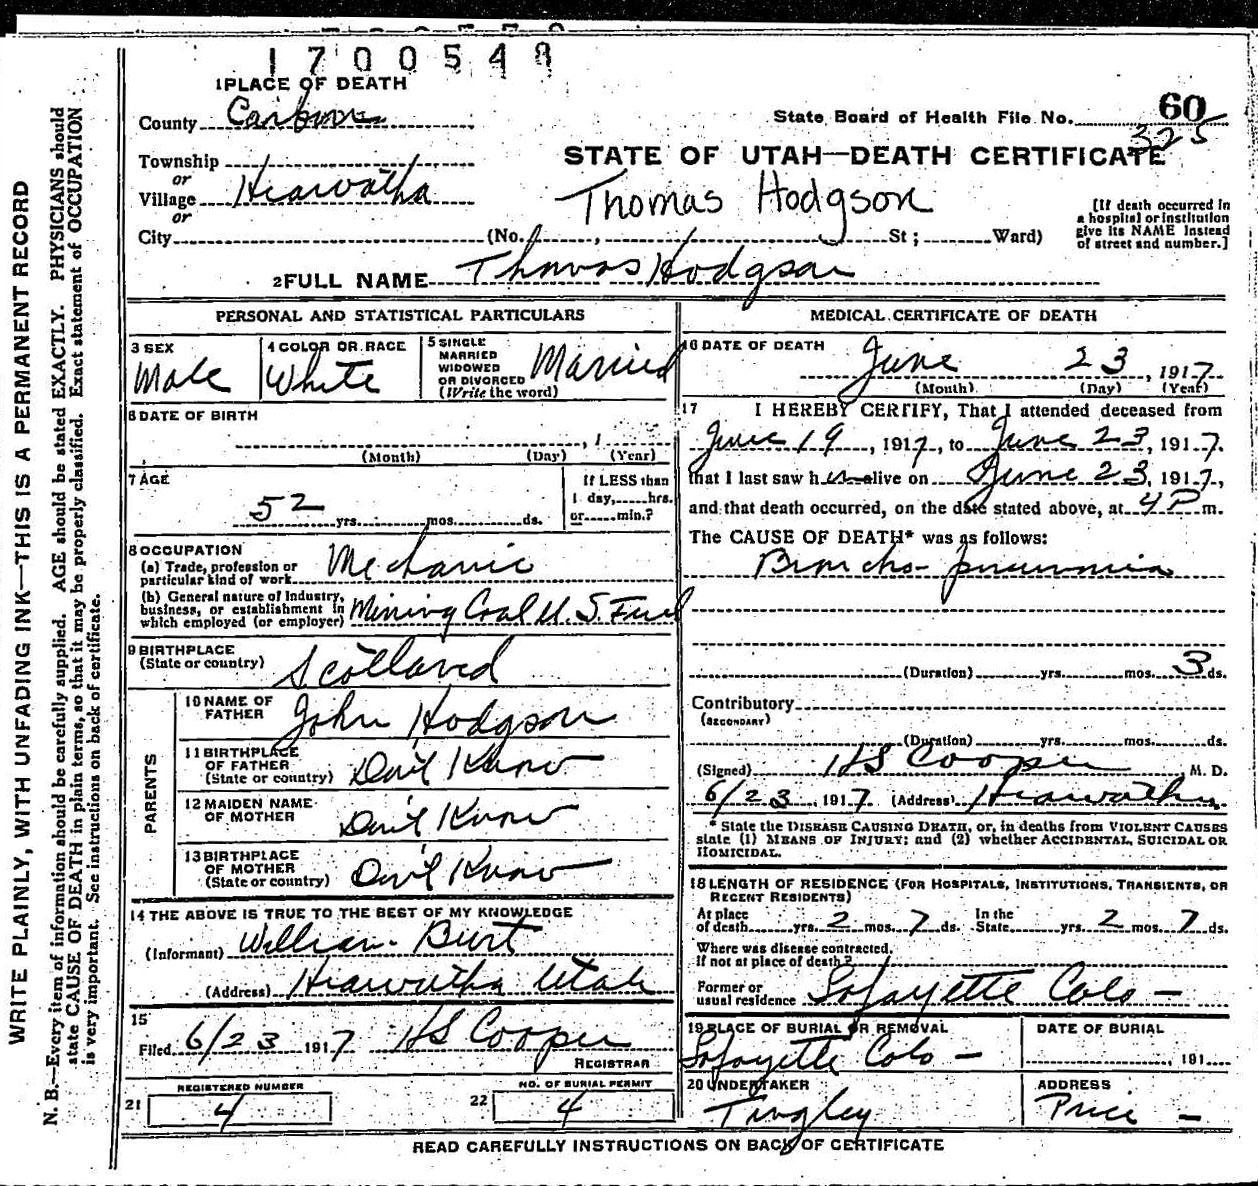 1700548
1 PLACE OF DEATH
County Carbon
State Board of Health File No. 60
325
Township
or
Village Hiawatha
or
STATE OF UTAH—DEATH CERTIFICATE
Thomas Hodgson
City (No. , St ; Ward)
[If death occurred in
a hospital or institution
give its NAME instead
of street and number.]
2 FULL NAME Thomas Hodgson
PERSONAL AND STATISTICAL PARTICULARS
3 SEX
Male
4 COLOR OR RACE
White
5 SINGLE
MARRIED
WIDOWED
OR DIVORCED
(Write the word)
Married
6 DATE OF BIRTH
, 1
(Month) (Day) (Year)
7 AGE
52 yrs. mos. ds.
If LESS than
1 day, hrs.
or min.?
8 OCCUPATION
(a) Trade, profession or
particular kind of work Mechanic
(b) General nature of Industry,
business, or establishment in
which employed (or employer) Mining Coal U. S. Fuel
9 BIRTHPLACE
(State or country) Scotland
PARENTS
10 NAME OF
FATHER John Hodgson
11 BIRTHPLACE
OF FATHER
(State or country) Don't Know
12 MAIDEN NAME
OF MOTHER Don't Know
13 BIRTHPLACE
OF MOTHER
(State or country) Don't Know
14 THE ABOVE IS TRUE TO THE BEST OF MY KNOWLEDGE
(Informant) William Burt
(Address) Hiawatha Utah
15
Filed 6/23 1917 HS Cooper
REGISTRAR
REGISTERED NUMBER
21 4
NO. OF BURIAL PERMIT
22 4
MEDICAL CERTIFICATE OF DEATH
16 DATE OF DEATH
June 23, 1917
(Month) (Day) (Year)
17 I HEREBY CERTIFY, That I attended deceased from
June 19, 1917, to June 23, 1917.
that I last saw him alive on June 23, 1917,
and that death occurred, on the date stated above, at 4 P m.
The CAUSE OF DEATH* was as follows:
Broncho-pneumonia
(Duration) yrs. mos. 3 ds.
Contributory
(SECONDARY)
(Duration) yrs. mos. ds.
(Signed) HS Cooper M. D.
6/23, 1917 (Address) Hiawatha
* State the DISEASE CAUSING DEATH, or, in deaths from VIOLENT CAUSES
state (1) MEANS OF INJURY; and (2) whether ACCIDENTAL, SUICIDAL OR
HOMICIDAL.
18 LENGTH OF RESIDENCE (FOR HOSPITALS, INSTITUTIONS, TRANSIENTS, OR
RECENT RESIDENTS)
At place
of death yrs. 2 mos. 7 ds.
In the
State yrs. 2 mos. 7 ds.
Where was disease contracted,
If not at place of death?
Former or
usual residence Lafayette Colo —
19 PLACE OF BURIAL OR REMOVAL
Lafayette Colo —
DATE OF BURIAL
, 191
20 UNDERTAKER
Tingley
ADDRESS
Price —
READ CAREFULLY INSTRUCTIONS ON BACK OF CERTIFICATE
WRITE PLAINLY, WITH UNFADING INK—THIS IS A PERMANENT RECORD
N. B.—Every item of information should be carefully supplied. AGE should be stated EXACTLY. PHYSICIANS should
state CAUSE OF DEATH in plain terms, so that it may be properly classified. Exact statement of OCCUPATION
is very important. See instructions on back of certificate.